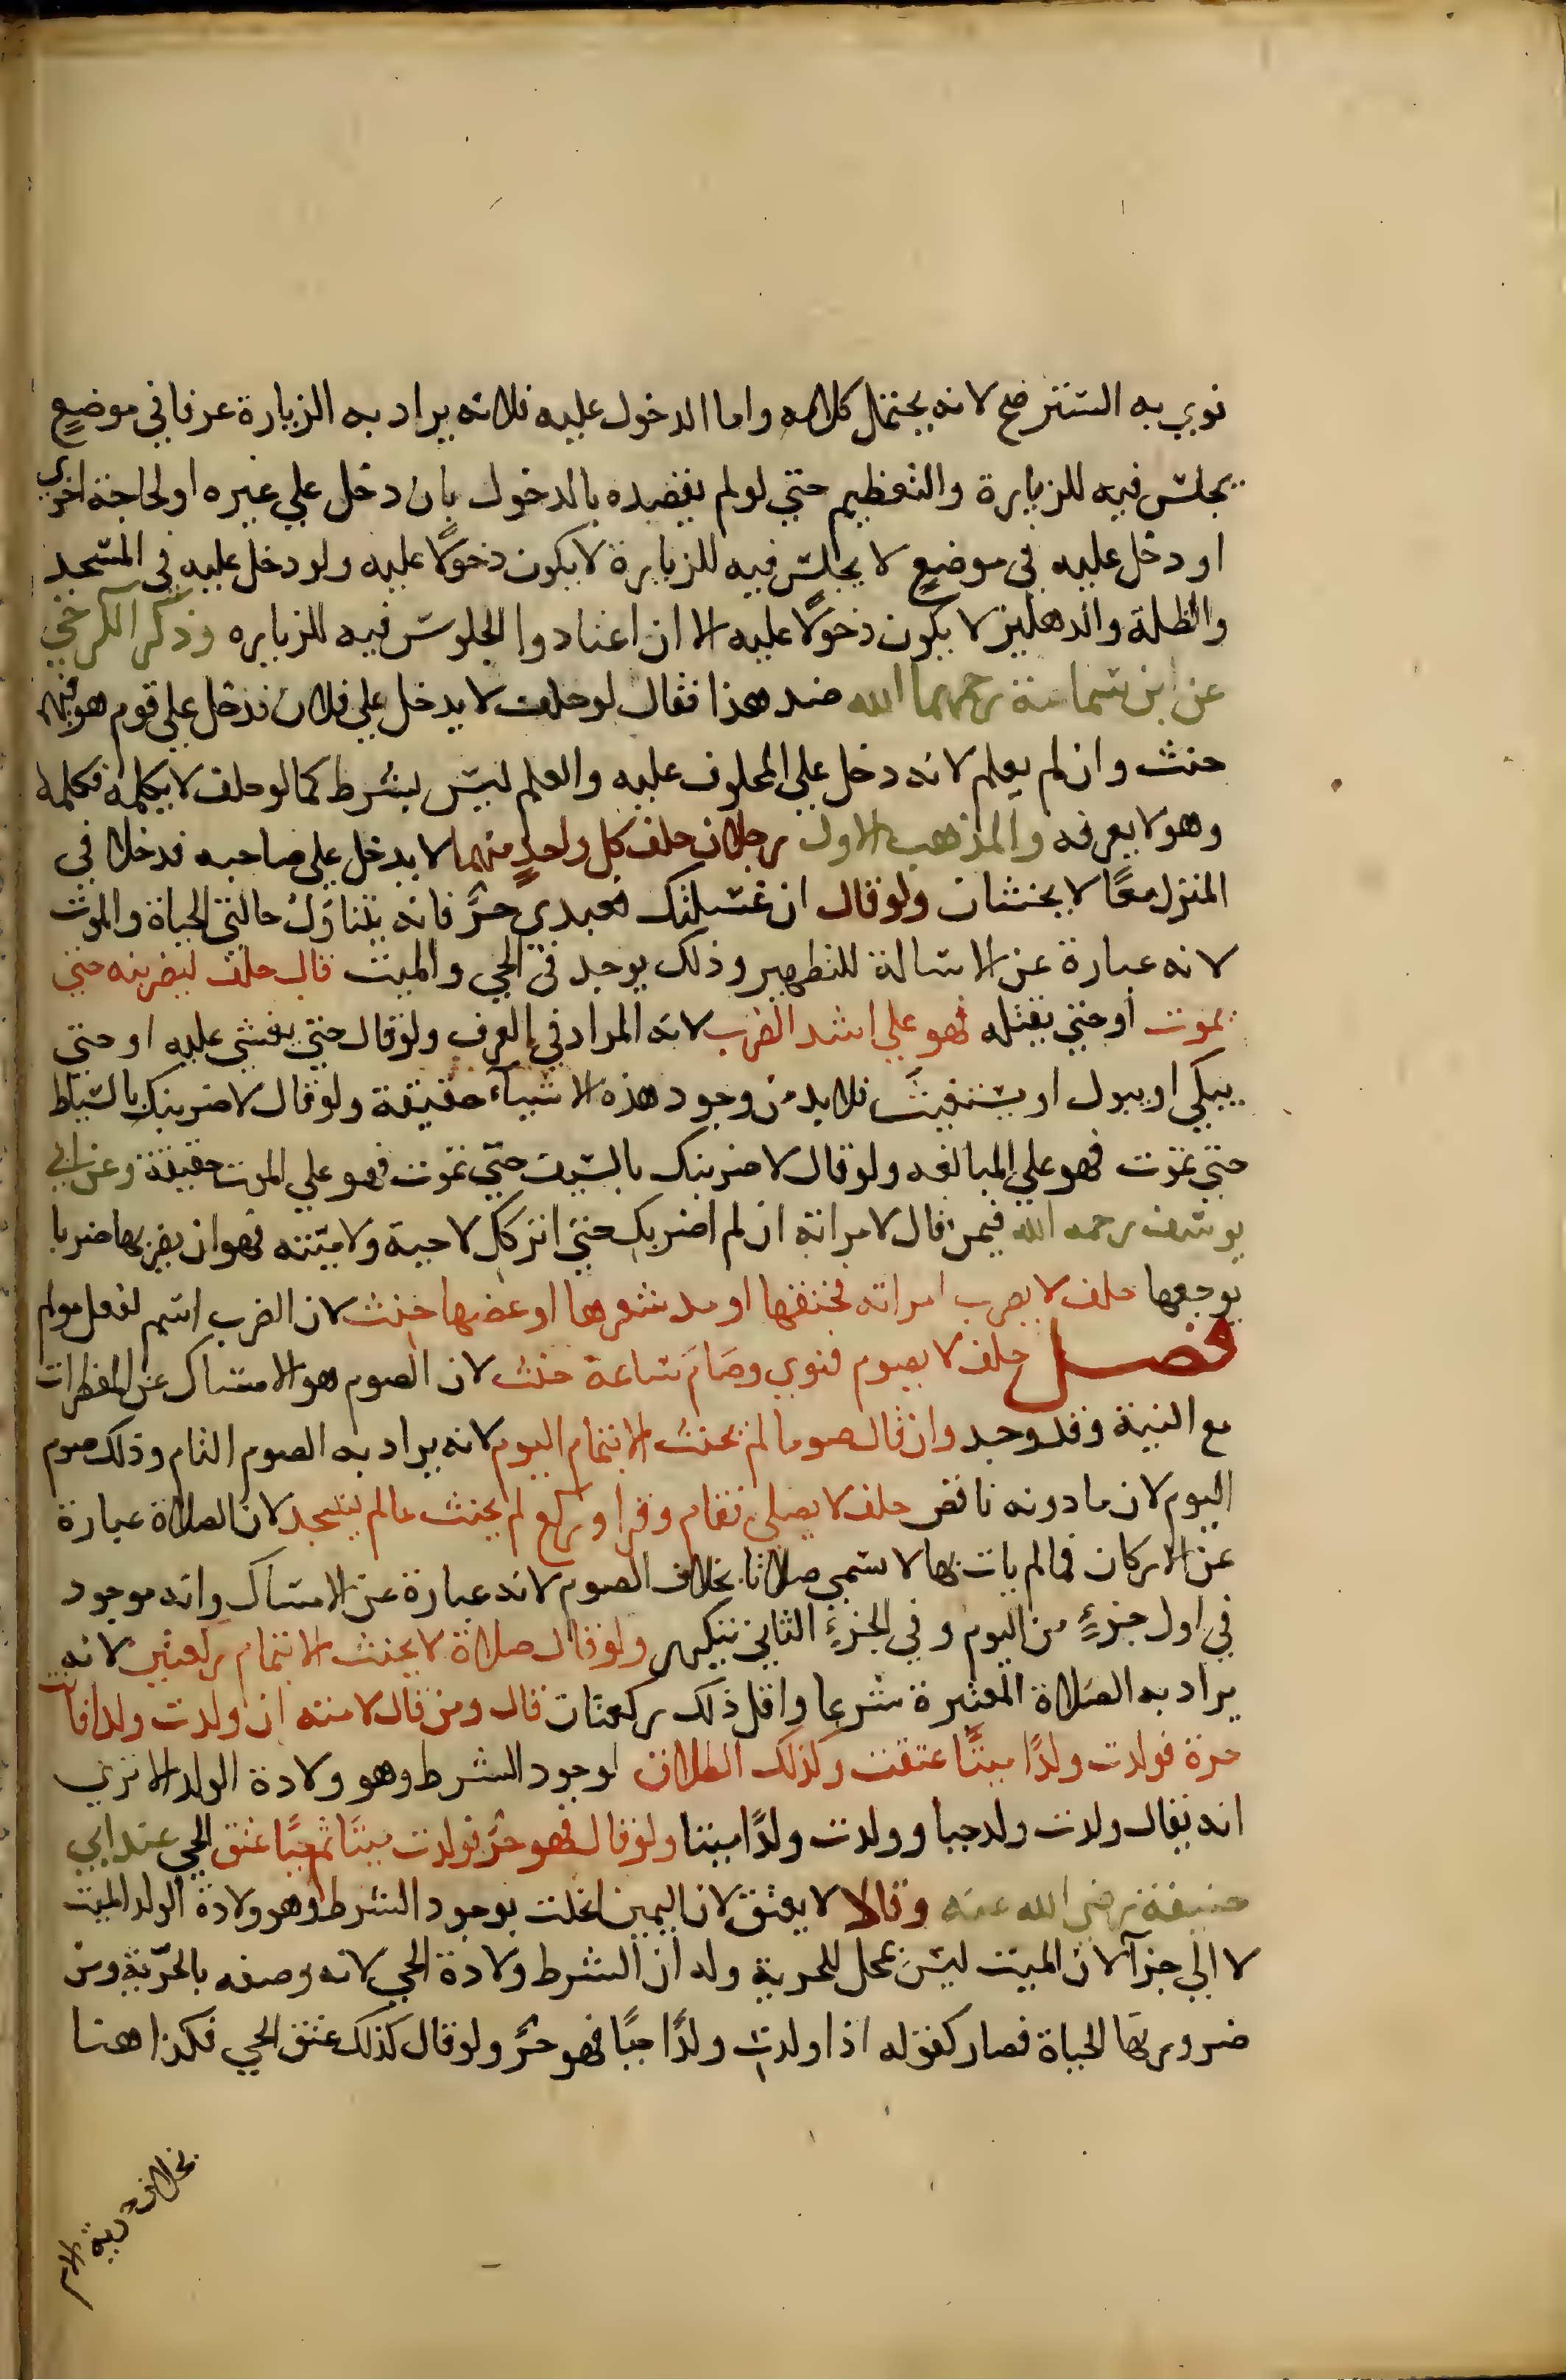 نوي به التنزمنح لانه يحتمل كلامه واما الدخول عليه فلانه يراد به الزيارة عرفا في موضعٍ
يجلس فيه للزيارة والتعظيم حتي لو لم يقصده بالدخول بان دخل علي غيره او لحاجة اخري
او دخل عليه في موضعٍ لا يجلس فيه للزيارة لا يكون دخولًا عليه ولو دخل عليه في المسجد
والظلة والدهليز لا يكون دخولًا عليه الا ان اعتادوا الجلوس فيه للزياره وذكر الكرخي
عن ابن سماعة رحمهما الله ضد هذا فقال لو حلف لا يدخل علي فلان فدخل علي قوم هو فيهم
حنث وان لم يعلم لانه دخل علي المحلوف عليه والعلم ليس بشرط كما لو حلف لا يكلمه فكلمه
وهو لا يعرفه والمذهب الاول رجلان حلف كل واحدٍ منهما لا يدخل علي صاحبه فدخلا في
المنزل معًا لا يحنثان ولو قال ان غسلتك فعبدي حرٌ فانه يتناول حالتي الحياة والموت
لانه عبارة عن الاسالة للتطهير وذلك يوجد في الحي والميت قال حلف ليضربنه حتي
يموت او حتي يقتله فهو علي اشد الضرب لانه المراد في العرف ولو قال حتي يغشي عليه او حتي
يبكي او يبول او يستغيث فلا بد من وجود هذه الاشياء حقيقة ولو قال لاضربنك بالسياط
حتي تموت فهو علي المبالغه ولو قال لاضربنك بالسيف حتي تموت فهو علي الموت حقيقة وعن ابي
يوسف رحمه الله فيمن قال لامراته ان لم اضربك حتي اتركك لا حية ولا ميتته فهو ان يضربها ضربا
يوجعها حلف لا يضرب امراته فخنقها او مد شعرها او عضها حنث لان الضرب اسم لفعل مولم
فصل حلف لا يصوم فنوي وصام ساعة حنث لان الصوم هو الامساك عن المفطرات
مع النية وقد وجد وان قال صوما لم يحنث الا بتمام اليوم لانه يراد به الصوم التام وذلك صوم
اليوم لان ما دونه ناقص حلف لا يصلي فقام وقرا وركع لم يحنث ما لم يسجد لان الصلاة عبارة
عن الاركان فما لم يات بها لا تسمي صلاتا بخلاف الصوم لانه عبارة عن الامساك وانه موجود
في اول جزءٍ من اليوم وفي الجزءِ الثاني يتكرر ولو قال صلاة لا يحنث الا بتمام ركعتين لانه
يراد به الصلاة المعتبرة شرعا واقل ذلك ركعتان قال ومن قال لامته ان ولدت ولدا فانت
حرة فولدت ولدًا ميتًا عتقت وكذلك الطلاق لوجود الشرط وهو ولادة الولد الا تري
انه يقال ولدت ولد حيا وولدت ولدًا ميتا ولو قال فهو حرٌ فولدت ميتًا ثم حيًا عتق الحي عند ابي
حنيفة رضي الله عنه وقالا لا يعتق لان اليمين انحلت بوجود الشرط وهو ولادة الولد الميت
لا الي جزآ لان الميت ليس بمحل للحرية وله ان الشرط ولادة الحي لانه وصفه بالحرّية ومن
ضرورتها الحياة فصار كقوله اذا ولدت ولدًا حيًا فهو حرٌ ولو قال كذلك عتق الحي فكذا هنا
بخلاف حرية الام